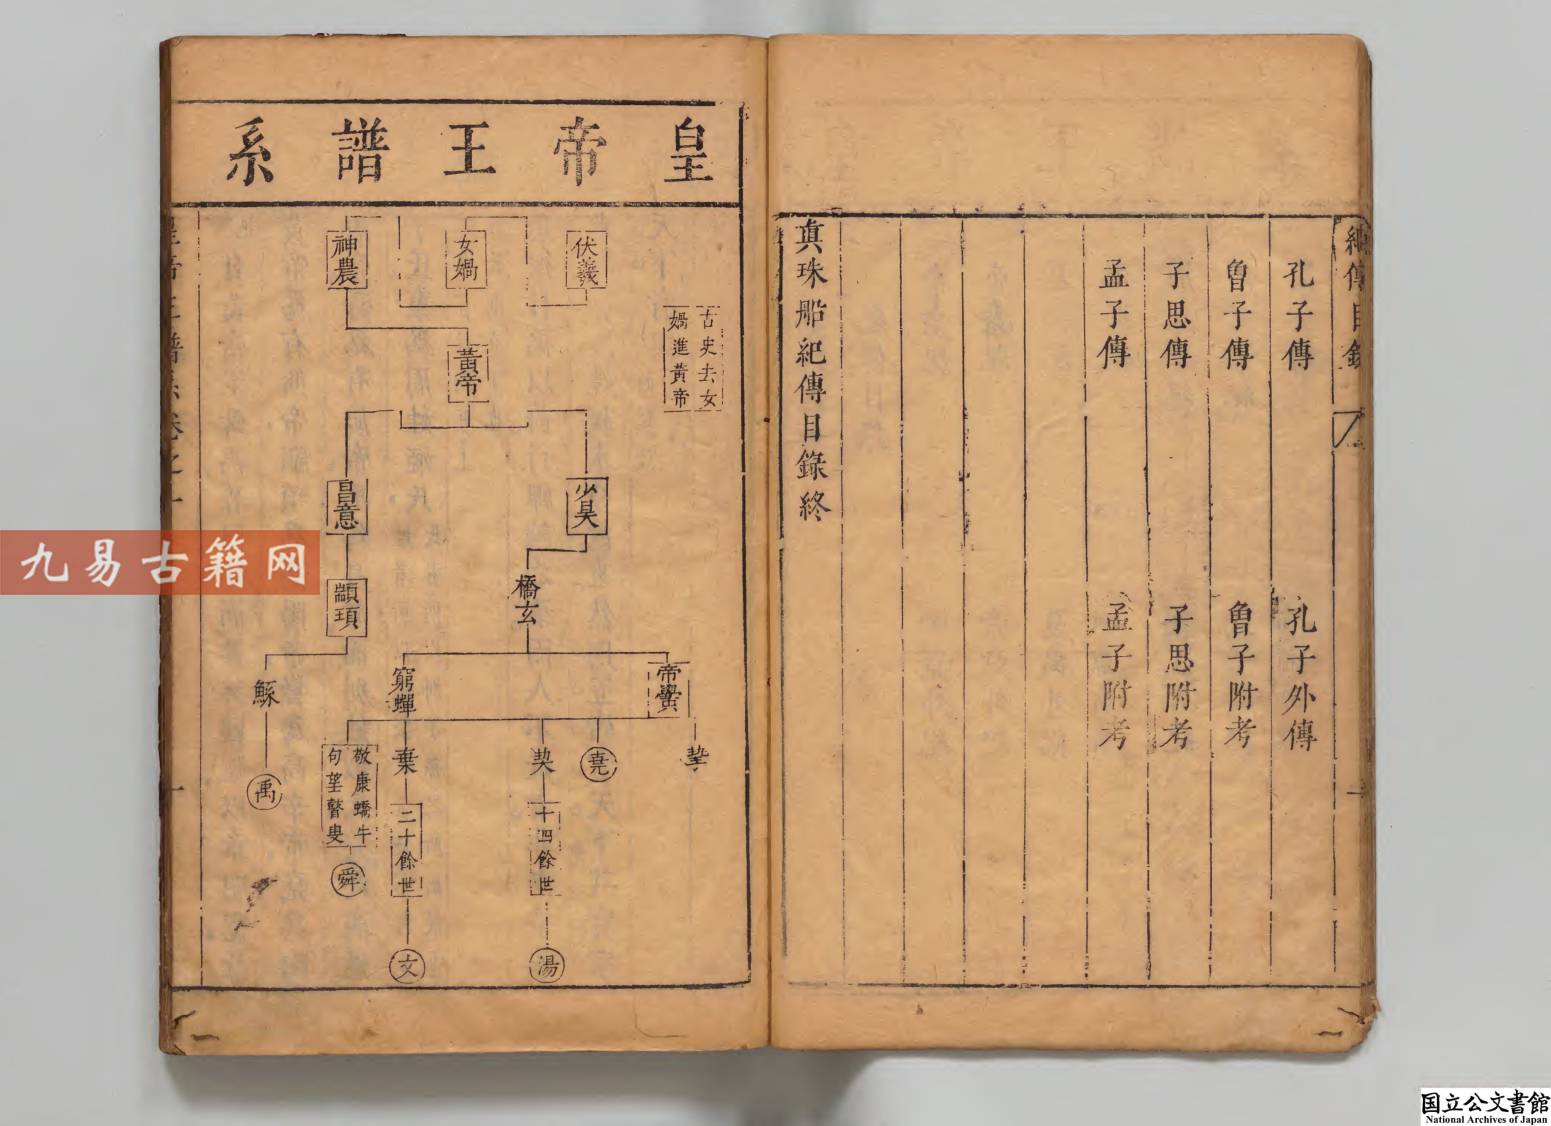 紀傳目錄
孔子傳 孔子外傳
曾子傳 曾子附考
子思傳 子思附考
孟子傳 孟子附考
真珠船紀傳目錄終
皇帝王譜系
伏羲
女媧
神農
古史去女
媧進黃帝
黃帝
少昊
昌意
橋玄
顓頊
帝嚳
窮蟬
鯀
摯
堯
契
棄
敬康蟜牛
句望瞽叟
禹
十四餘世
二十餘世
舜
湯
文
皇帝王譜系卷之一
一
九易古籍网
国立公文書館
National Archives of Japan